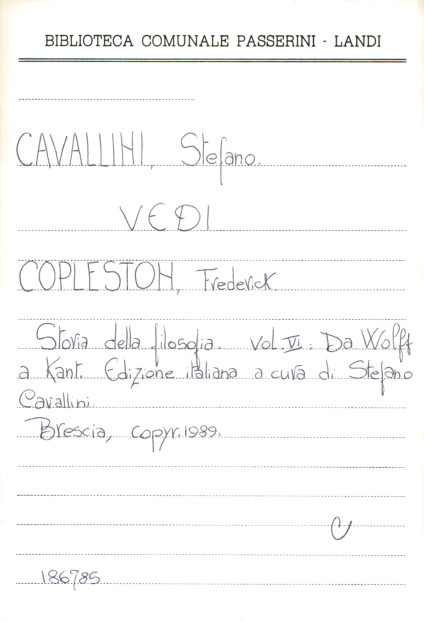 BIBLIOTECA COMUNALE PASSERINI - LANDI
CAVALLINI, Stefano.
VEDI
COPLESTON, Frederick
Storia della filosofia. Vol. VI: Da Wolff
a Kant. Edizione italiana a cura di Stefano
Cavallini.
Brescia, copyr. 1989.
C
186785